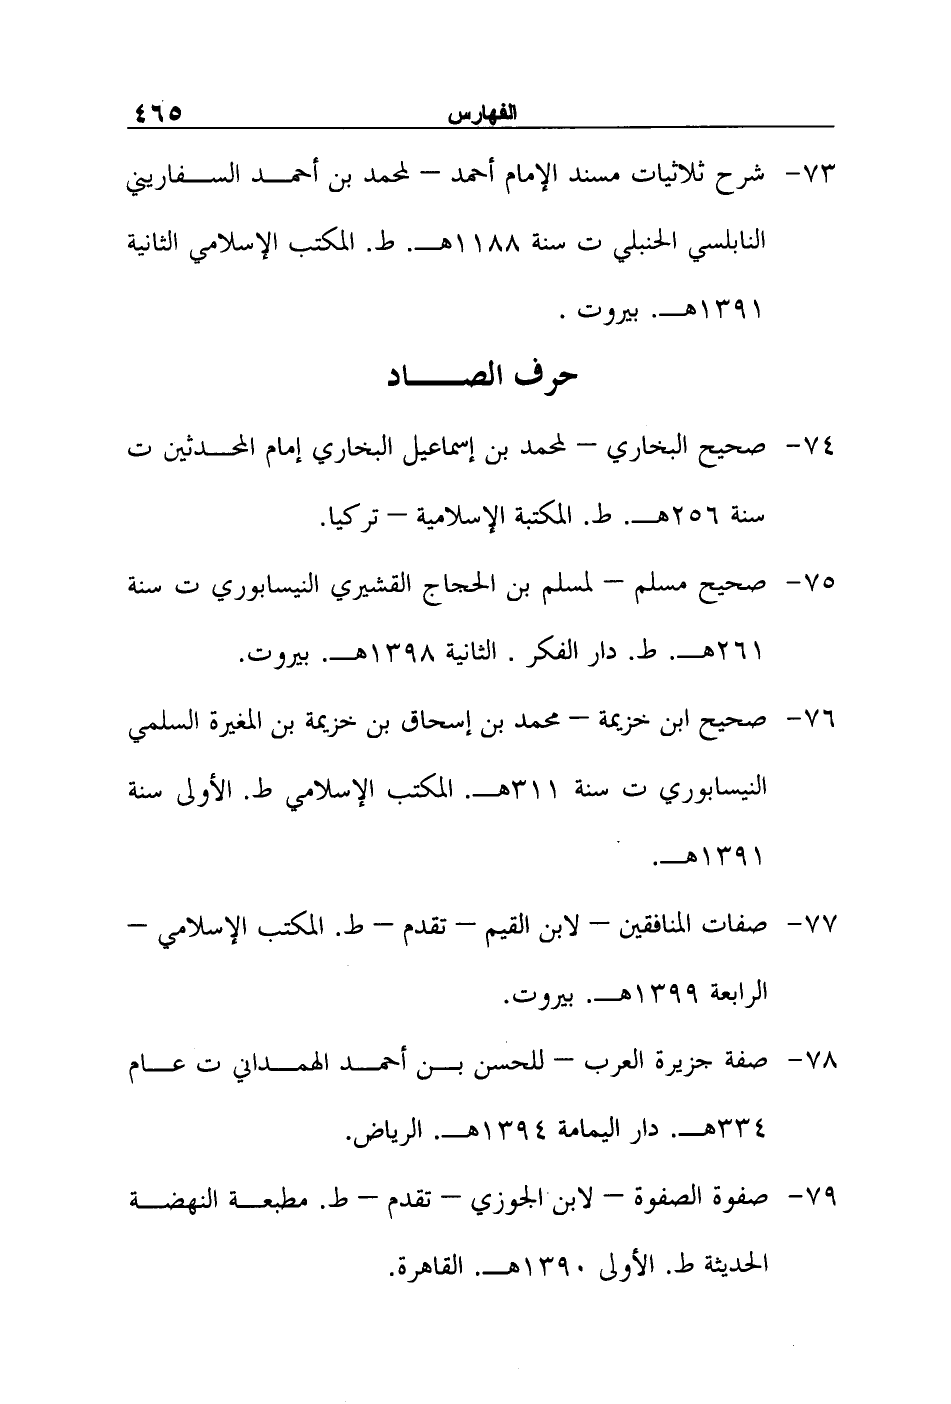 الفهارس ٤٦٥
٧٣- شرح ثلاثيات مسند الإمام أحمد – لمحمد بن أحمد السفاريني
النابلسي الحنبلي ت سنة ١١٨٨هـ. ط. المكتب الإسلامي الثانية
١٣٩١هـ. بيروت .
حرف الصاد
٧٤- صحيح البخاري – لمحمد بن إسماعيل البخاري إمام المحدثين ت
سنة ٢٥٦هـ. ط. المكتبة الإسلامية – تركيا.
٧٥- صحيح مسلم – لمسلم بن الحجاج القشيري النيسابوري ت سنة
٢٦١هـ. ط. دار الفكر . الثانية ١٣٩٨هـ. بيروت.
٧٦- صحيح ابن خزيمة – محمد بن إسحاق بن خزيمة بن المغيرة السلمي
النيسابوري ت سنة ٣١١هـ. المكتب الإسلامي ط. الأولى سنة
١٣٩١هـ.
٧٧- صفات المنافقين – لابن القيم – تقدم – ط. المكتب الإسلامي –
الرابعة ١٣٩٩هـ. بيروت.
٧٨- صفة جزيرة العرب – للحسن بن أحمد الهمداني ت عام
٣٣٤هـ. دار اليمامة ١٣٩٤هـ. الرياض.
٧٩- صفوة الصفوة – لابن الجوزي – تقدم – ط. مطبعة النهضة
الحديثة ط. الأولى ١٣٩٠هـ. القاهرة.